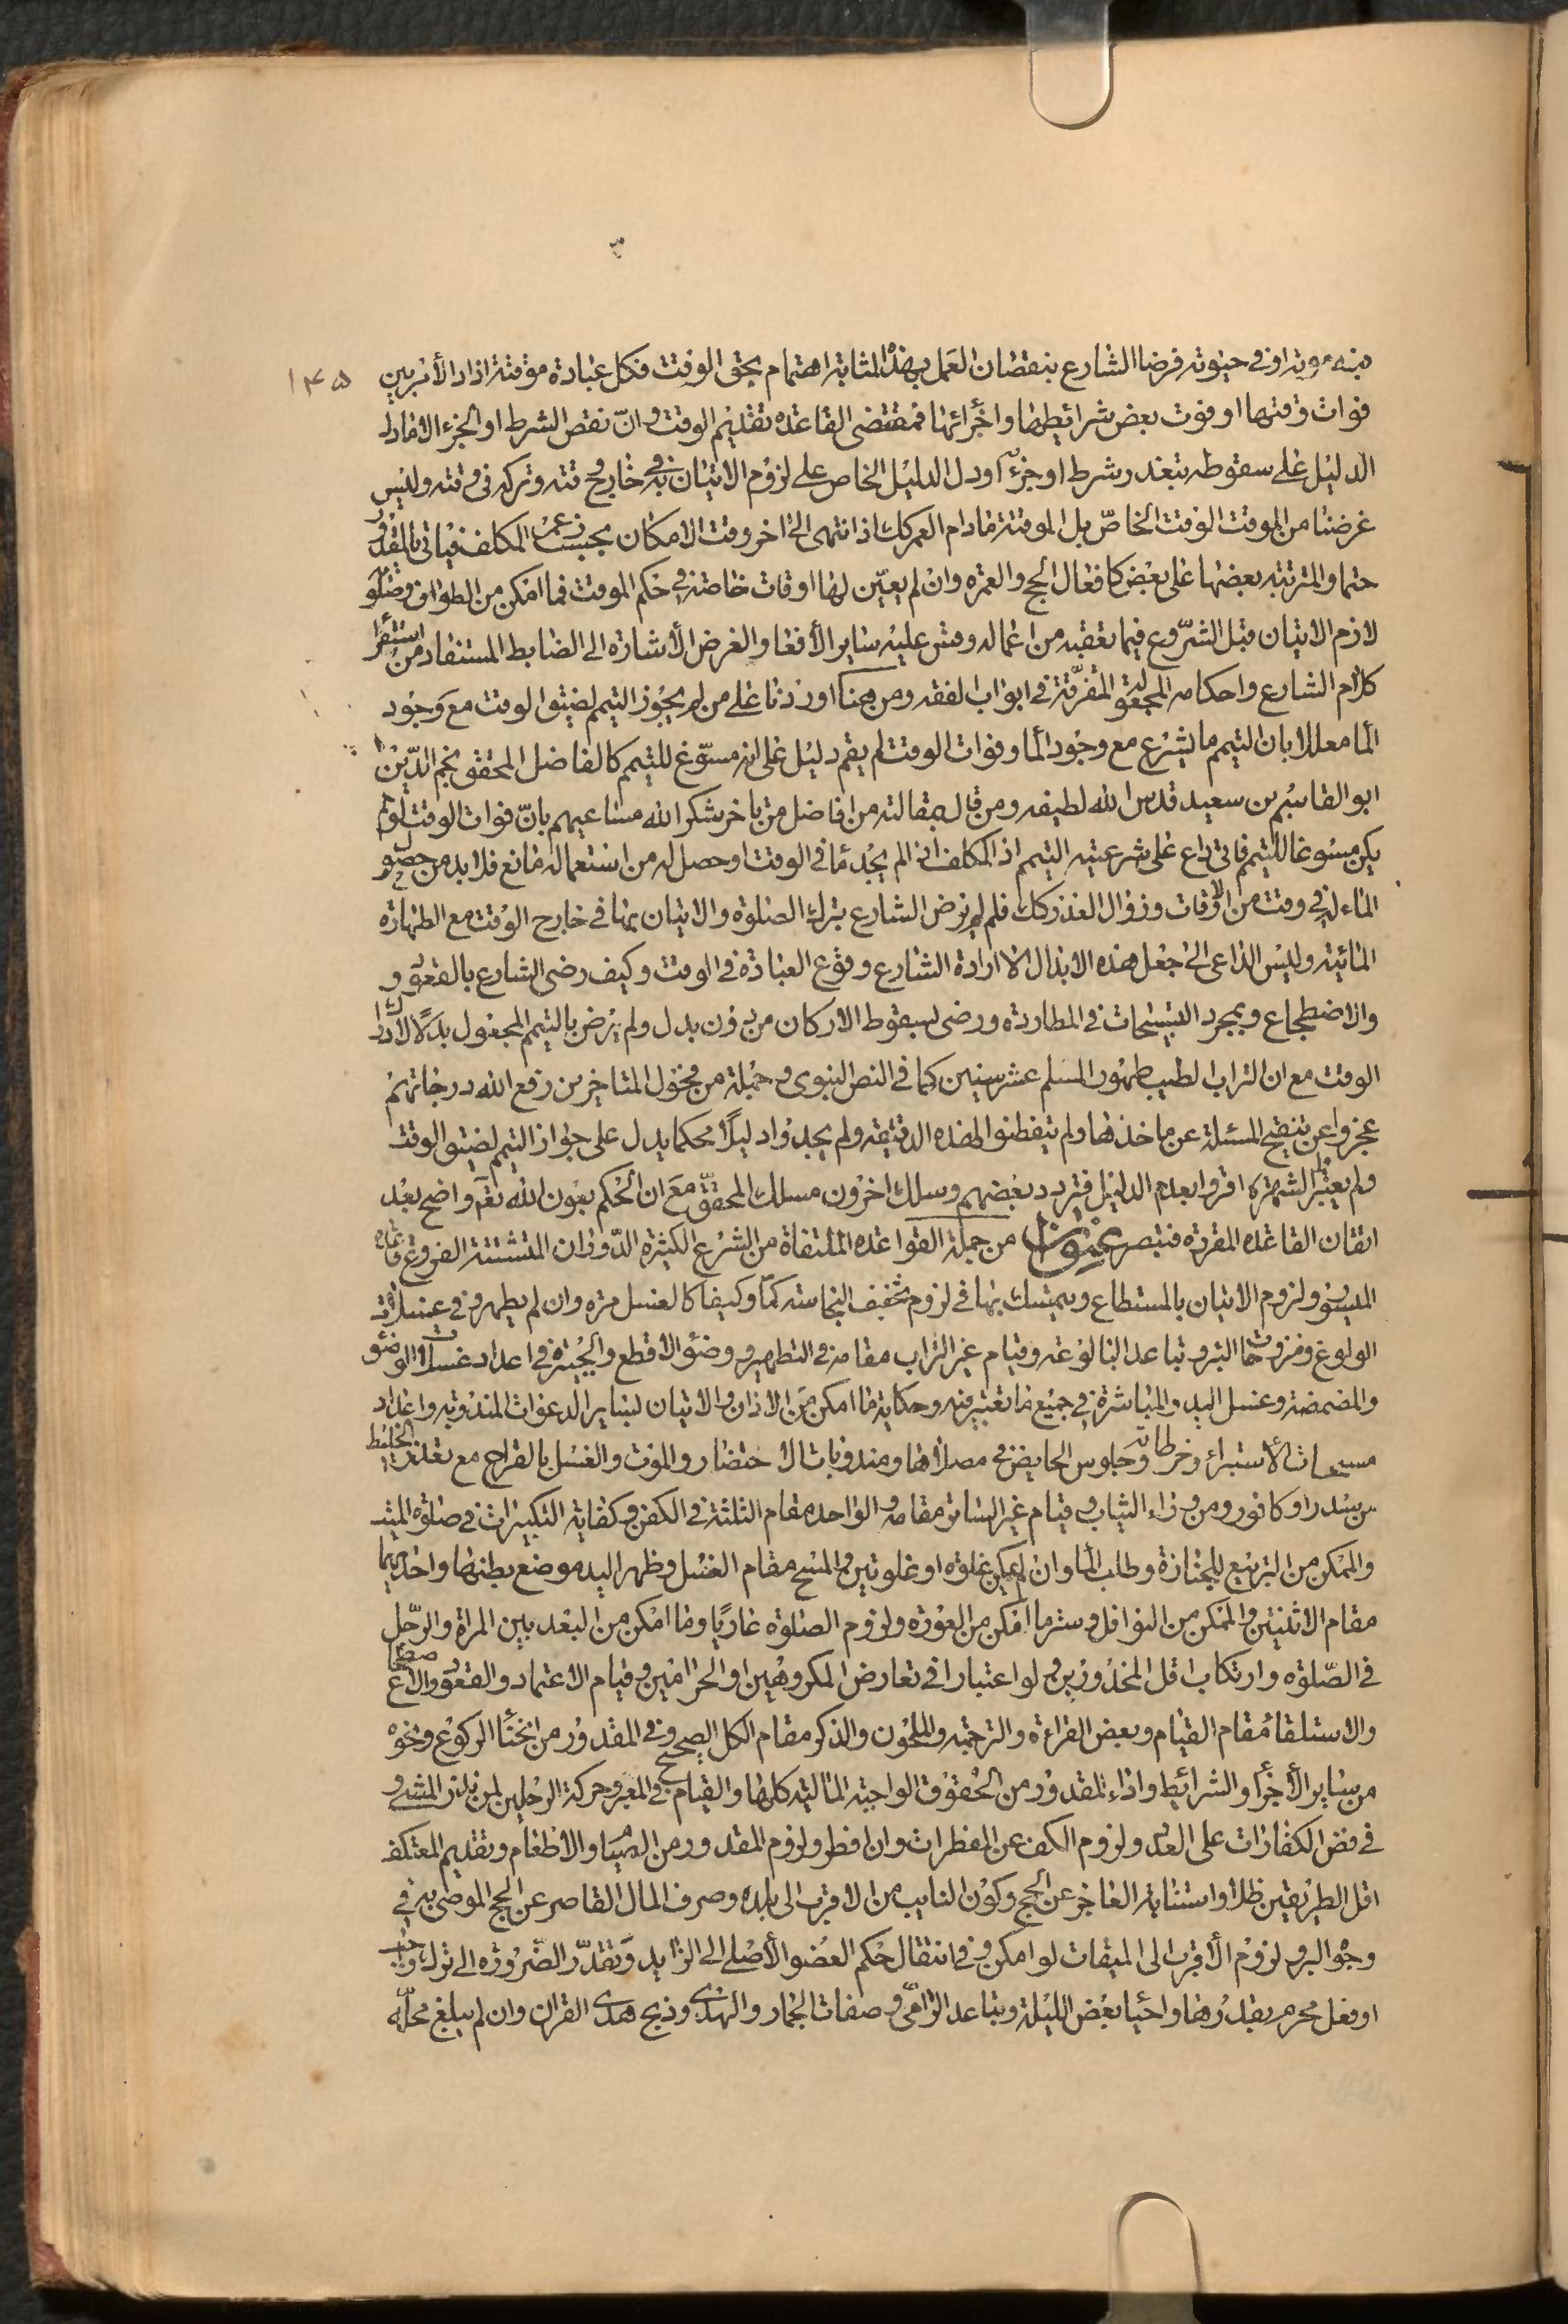 منه موته او في حيوته فرضا الشارع بنقصان العمل بهذه المثابة اهتمام بحق الوقت فكل عبادة موقتة اذا دار الأمر بين ۱۴۵
فوات وقتها او فوت بعض شرائطها واجزائها فمقتضى القاعده تقديم الوقت وان نقص الشرط او الجزء الا ما دل
الدليل على سقوطه بتعذر شرط او جزء او دل الدليل الخاص على لزوم الاتيان به في خارج وقته وتركه في وقته وليس
غرضنا من الموقت الوقت الخاص بل الموقتة مادام العمر كك اذا انتهى الى اخر وقت الامكان بحسب عمر المكلف فياتى بالمقدور
حتما والمترتبه بعضها على بعض كافعال الحج والعمره وان لم يعين لها اوقات خاصة في حكم الموقت فما امكن من الطواف وصلوته
لازم الاتيان قبل الشروع فيما تعقبه من اعماله وقس عليه ساير الأفعا والغرض الأشارة الى الضابط المستفاد من استقراء
كلام الشارع واحكامه المجعولة المتفرقة في ابواب الفقه ومن هنا اوردنا على من لم يجوز التيمم لضيق الوقت مع وجود
الما معللا بان التيمم ما يشرع مع وجود الما وفوات الوقت لم يقم دليل على انه مسوغ للتيمم كالفاضل المحقق نجم الدين
ابو القاسم بن سعيد قدس الله لطيفه ومن قال بمقالته من افاضل من تاخر شكر الله مساعيهم بان فوات الوقت لو لم
يكن مسوغا للتيمم فاى داع على شرعيته التيمم اذ المكلف اذا لم يجد ما في الوقت او حصل له من استعماله مانع فلا بد من حصول
الماء له في وقت من الاوقات وزوال العذر كك فلم لم يرض الشارع بترك الصلوة والاتيان بها في خارج الوقت مع الطهارة
المائية وليس الداعى الى جعل هذه الابدال الا ارادة الشارع وقوع العبادة في الوقت وكيف رضى الشارع بالقعود و
والاضطجاع وبمجرد التسبيحات في المطاردة ورضى لسقوط الاركان من دون بدل ولم يرض بالتيمم المجعول بدلا لادراك
الوقت مع ان التراب الطيب طهور المسلم عشر سنين كما في النص النبوى وجملة من فحول المتاخرين رفع الله درجاتهم
عجزوا عن تنقيح المسئلة عن ماخذها ولم يتفطنوا لهذه الدقيقه ولم يجدوا دليلا محكما يدل على جواز التيمم لضيق الوقت
ولم يعتبر الشهرة اقروا بعدم الدليل فتردد بعضهم وسلك اخرون مسلك المحقق مع ان الحكم بعون الله تعا واضح بعد
اتقان القاعده المقررة فتبصر عنوان من جملة القواعده المتلقاة من الشرع الكثيره الدوران المتشتتة الفروع قاعده
الميسور ولزوم الاتيان بالمستطاع ويتمسك بها في لزوم تخفيف النجاسته كما وكيفا كالغسل مره وان لم يطهر وفي غسلات
الولوغ ومنزوحات البئر وتباعد البالوغه وقيام غير التراب مقامه في التطهير ووضؤ الاقطع والجبيرة في اعداد غسلات الوضؤ
والمضمضة وغسل اليد والمباشرة في جميع ما تعتبر فيه وحكاية ما امكن من الاذان والاتيان لساير الدعوات المندوبه واعداد
مسحات الأستبراء وخرطاته وجلوس الحايض في مصلاها ومندوبات الاحتضار والموت والغسل بالقراح مع تعذر الخليط
من سدر او كافور ومن وراء الثياب وقيام غير الساتر مقامه والواحده مقام الثلثة في الكفن وكفاية التكبيرات في صلوة الميت
والممكن من التربيع للجنازة وطلب الما وان لم يمكن غلوه او غلوتين والمسح مقام الغسل وظهر اليد موضع بطنها واحديهما
مقام الاثنتين والممكن من النوافل وستر ما امكن من العوره ولزوم الصلوة عاريا وما امكن من البعد بين المراة والرجل
في الصلوة وارتكاب اقل المحذورين ولو اعتبارا في تعارض المكروهين او الحرامين وقيام الاعتماد والقعود والاضطجاع
والاستلقا مقام القيام وبعض القراءة والترجمه والملحون والذكر مقام الكل الصحيح وفي المقدور من انحنا الركوع ونحوه
من ساير الأجزا والشرائط واداء المقدور من الحقوق الواجبة المالية كلها والقيام في المعبر وحركة الرجلين لمن نذر المشى و
في فض الكفارات على العدد ولزوم الكف عن المفطرات وان افطر ولزوم المقدور من الصيام والاطعام وتقديم المعتكف
اقل الطريقين ظلا واستنابة العاجز عن الحج وكون النايب من الاقرب الى بلده وصرف المال القاصر عن الحج الموصى به في
وجوه البر ولزوم الأقرب الى الميقات لو امكن وفي انتقال حكم العضو الأصلى الى الزايد وتقدر الضرورة الى ترك واجب
او فعل محرم بقدرها واحيا بعض الليلة وتباعد الرامى وصفات الجمار والهدى وذبح هدى القران وان لم يبلغ محله